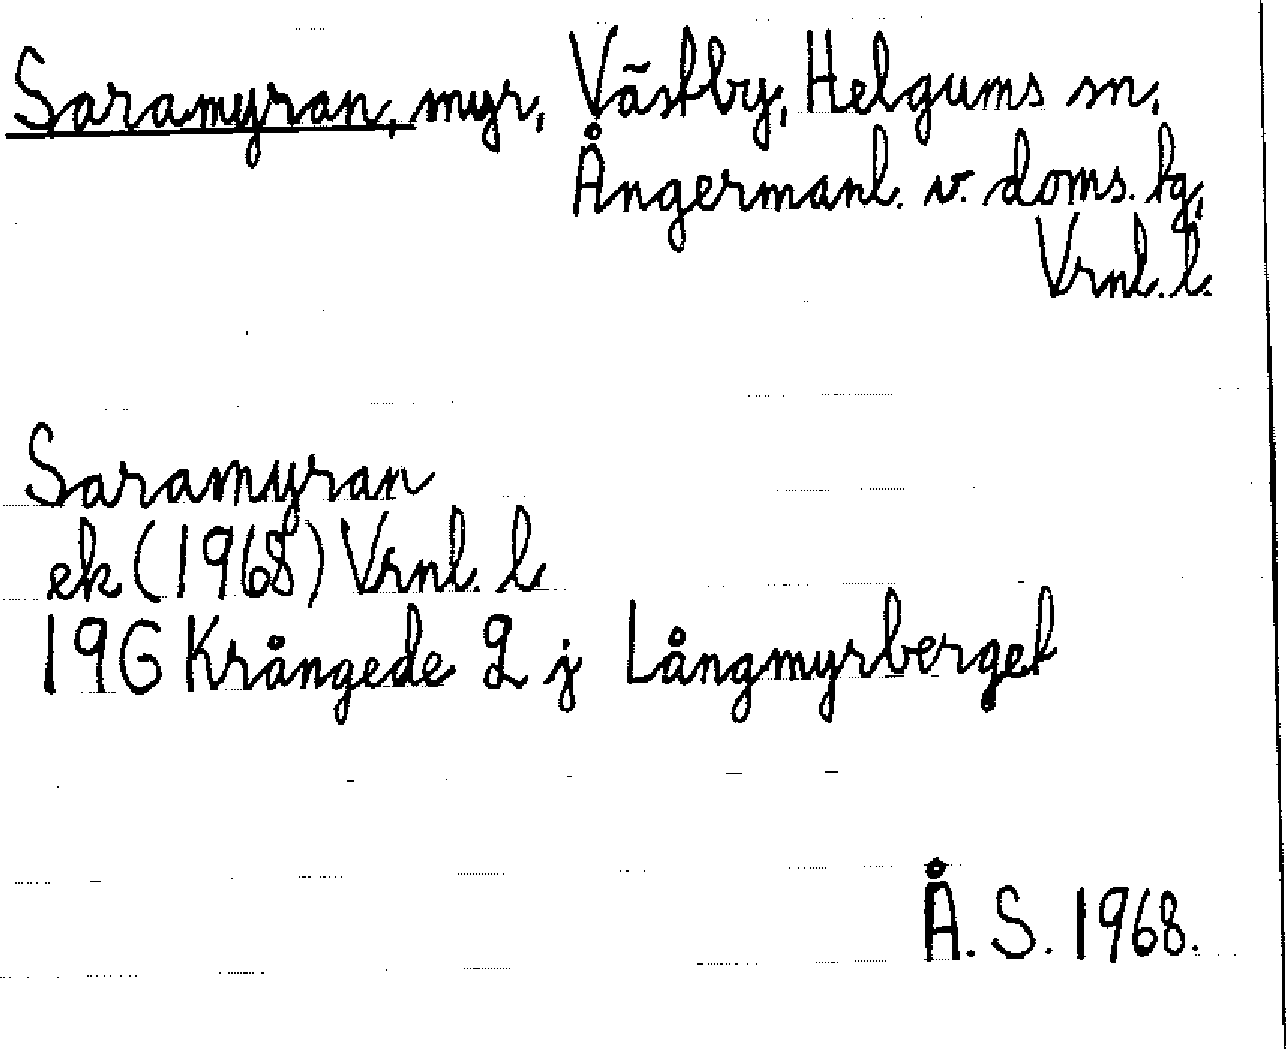 Saramyran, myr, Västby, Helgums sn,
Ångermanl. v. doms. tg,
Vrnl. l.
Saramyran
ek (1968) Vrnl. l
19G Krångede 2 j Långmyrberget
Å. S. 1968.